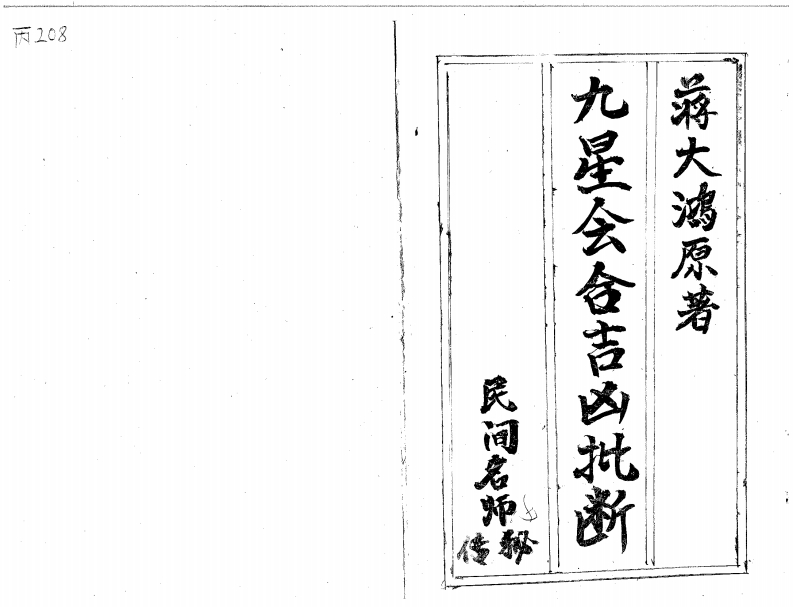 丙208
蒋大鴻原著
九星会合吉凶批断
民间名师秘传